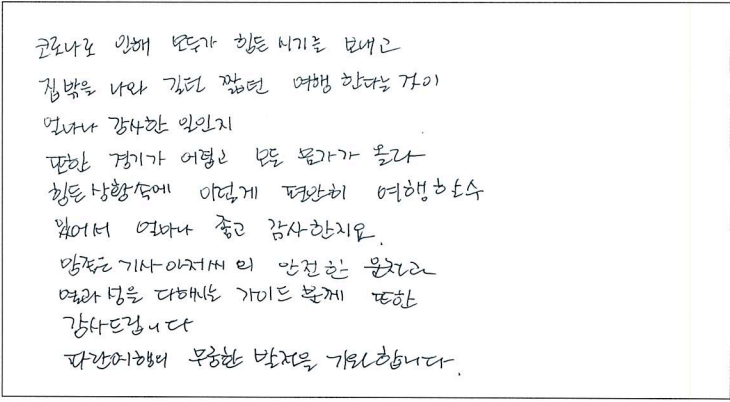 코로나로 인해 모두가 힘든 시기를 보내고
집밖을 나와 길던 짧던 여행 한다는 것이
얼마나 감사한 일인지
또한 경기가 어렵고 모든 물가가 올라
힘든 상황속에 이렇게 편안히 여행할수
있어서 얼마나 좋고 감사한지요.
기사아저씨의 안전한 운전과
열과 성을 다해주시는 가이드 분께 또한
감사드립니다
파란여행의 무궁한 발전을 기원합니다.